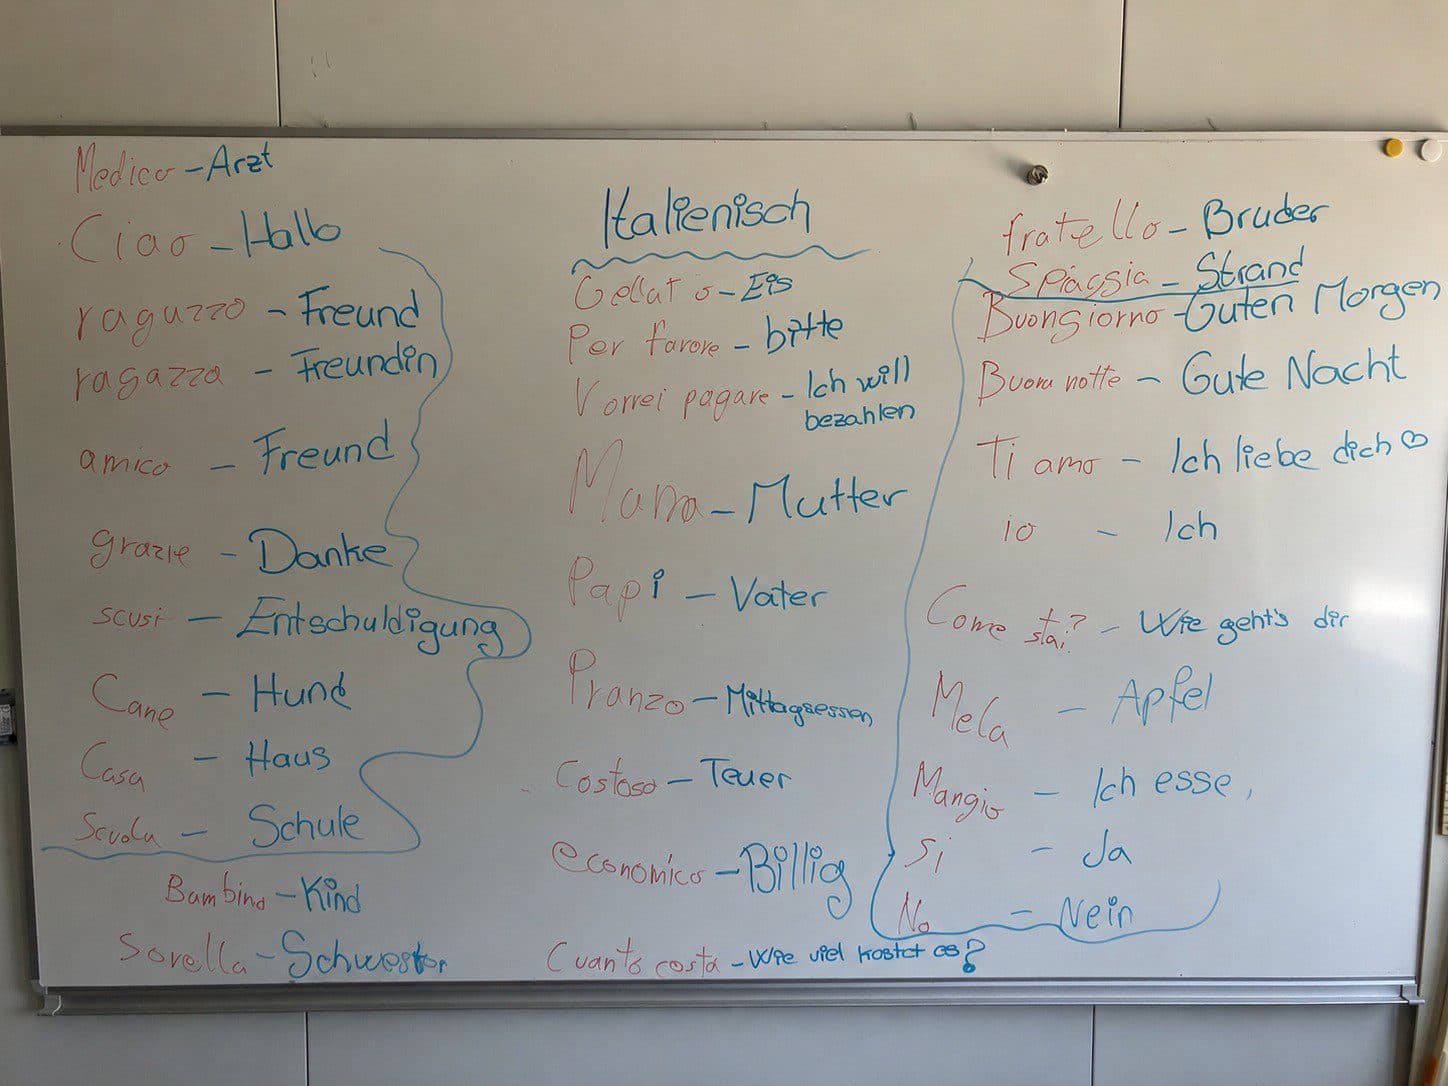 Medico - Arzt
Ciao - Hallo
raguzzo - Freund
ragazza - Freundin
amico - Freund
grazie - Danke
scusi - Entschuldigung
Cane - Hund
Casa - Haus
Scuola - Schule
Bambino - Kind
Sorella - Schwester
Italienisch
Gellato - Eis
Per favore - bitte
Vorrei pagare - Ich will
bezahlen
Mama - Mutter
Papi - Vater
Pranzo - Mittagsessen
Costoso - Teuer
economico - Billig
Cuanto costa - Wie viel kostet es?
fratello - Bruder
Spiaggia - Strand
Buongiorno - Guten Morgen
Buona notte - Gute Nacht
Ti amo - Ich liebe dich ♡
io - Ich
Come stai? - Wie geht's dir
Mela - Apfel
Mangio - Ich esse,
Si - Ja
No - Nein